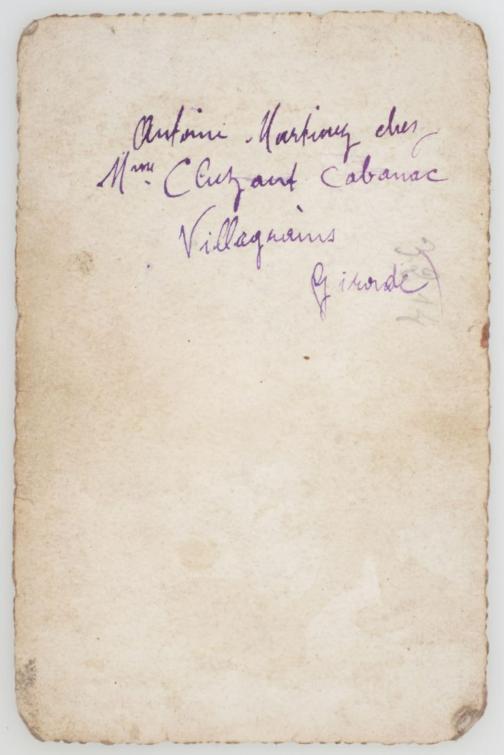 Antoine Martinez chez
Mme Cluzant Cabanac
Villagrains
Gironde